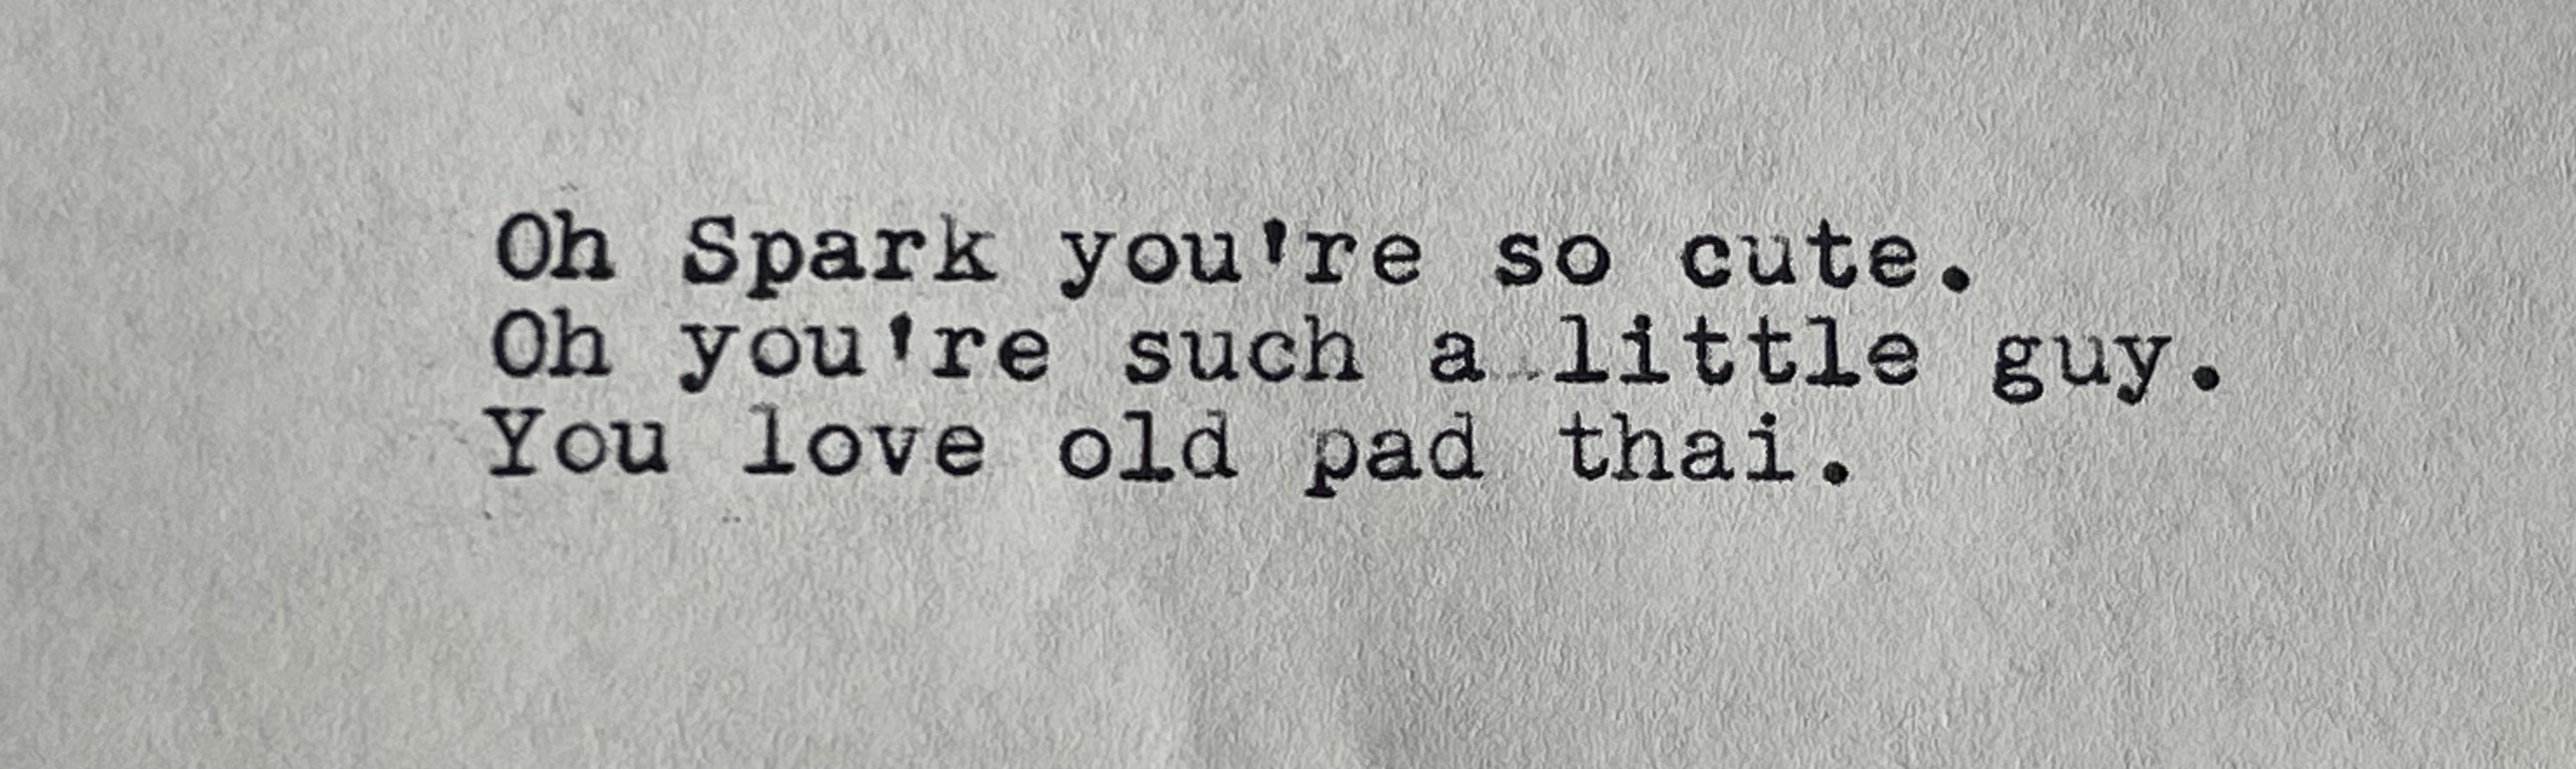 Oh Spark you're so cute.
Oh you're such a little guy.
You love old pad thai.